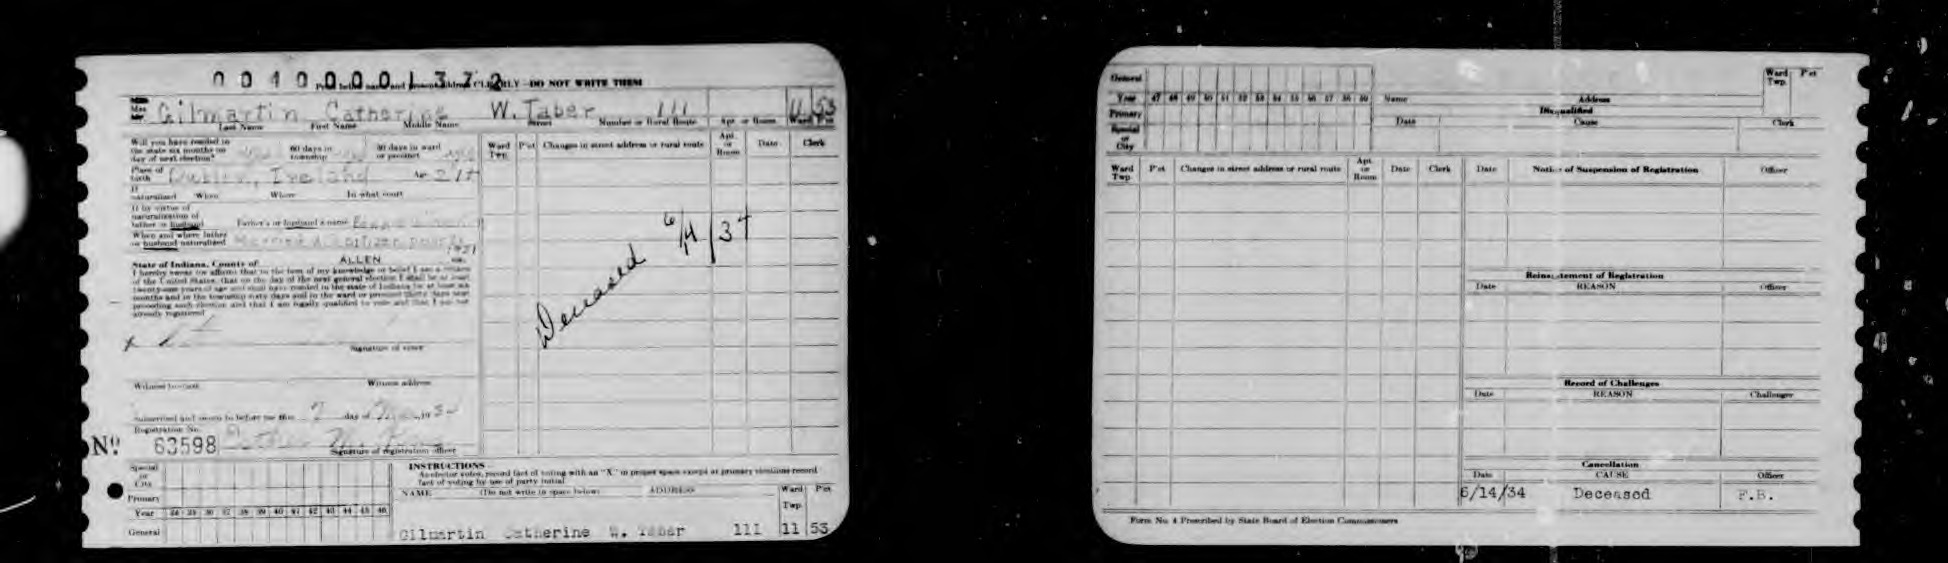 00100001372
Print letter name and present address CLEARLY—DO NOT WRITE THEM
Gilmartin Catherine W. Taber 111 11 53
Last Name First Name Middle Name Street Number or Rural Route Apt. or Room Ward Pct
Will you have resided in
the state six months on
day of next election? 60 days in
township 30 days in ward
or precinct
Place of
birth Dublin, Ireland Age 21+
If
naturalized When Where In what court
If by virtue of
naturalization of
father or husband Father's or husband's name
When and where father
or husband naturalized Married A Citizen
State of Indiana, County of ALLEN ss:
I hereby swear (or affirm) that to the best of my knowledge or belief I am a citizen
of the United States, that on the day of the next general election I shall be at least
twenty-one years of age and shall have resided in the state of Indiana for at least six
months and in the township sixty days and in the ward or precinct thirty days next
preceding such election and that I am legally qualified to vote and that I am not
already registered
x
Signature of voter
Witness address
Subscribed and sworn to before me this 7 day of 19
Registration No.
No. 63598
Signature of registration officer
Ward
Twp. P'ct Changes in street address or rural route Apt.
or
Room Date Clerk
Deceased 6/14/34
Special
or
City
Primary
Year
General
INSTRUCTIONS—
As elector votes, record fact of voting with an "X" in proper space except at primary elections record
fact of voting by use of party initial
NAME (Do not write in space below) ADDRESS Ward
Twp. P'ct
Gilmartin Catherine W. Taber 111 11 53
General
Year 47 48 49 50 51 52 53 54 55 56 57 58 59
Primary
Special
or
City
Name Address Ward
Twp. P'ct
Disqualified
Date Cause Clerk
Ward
Twp. P'ct Changes in street address or rural route Apt
or
Room Date Clerk
Date Notice of Suspension of Registration Officer
Reinstatement of Registration
Date REASON Officer
Record of Challenges
Date REASON Challenger
Cancellation
Date CAUSE Officer
6/14/34 Deceased F.B.
Form No. 4 Prescribed by State Board of Election Commissioners